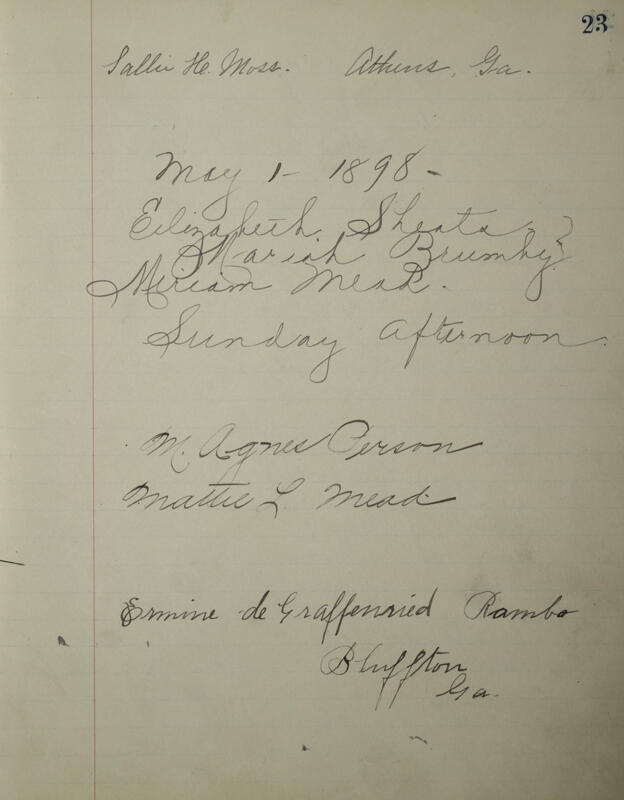 23
Sallie H. Moss. Athens, Ga.
May 1 - 1898 -
Elizabeth Sheats. }
Mariah Brumby }
Miriam Mead.
Sunday afternoon.
M. Agnes Person
Mattie L Mead.
Ermine de Graffenried Rambo
Bluffton
Ga.